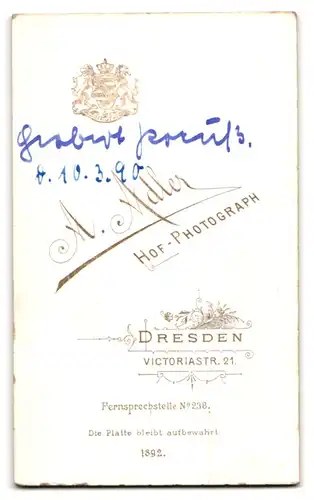 Herbert Preuß.
d. 10.3.90
A. Adler
HOF-PHOTOGRAPH
DRESDEN
VICTORIASTR. 21.
Fernsprechstelle No 236.
Die Platte bleibt aufbewahrt
1892.